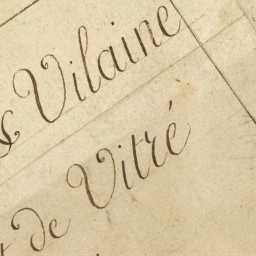 & Vilaine
t de Vitré